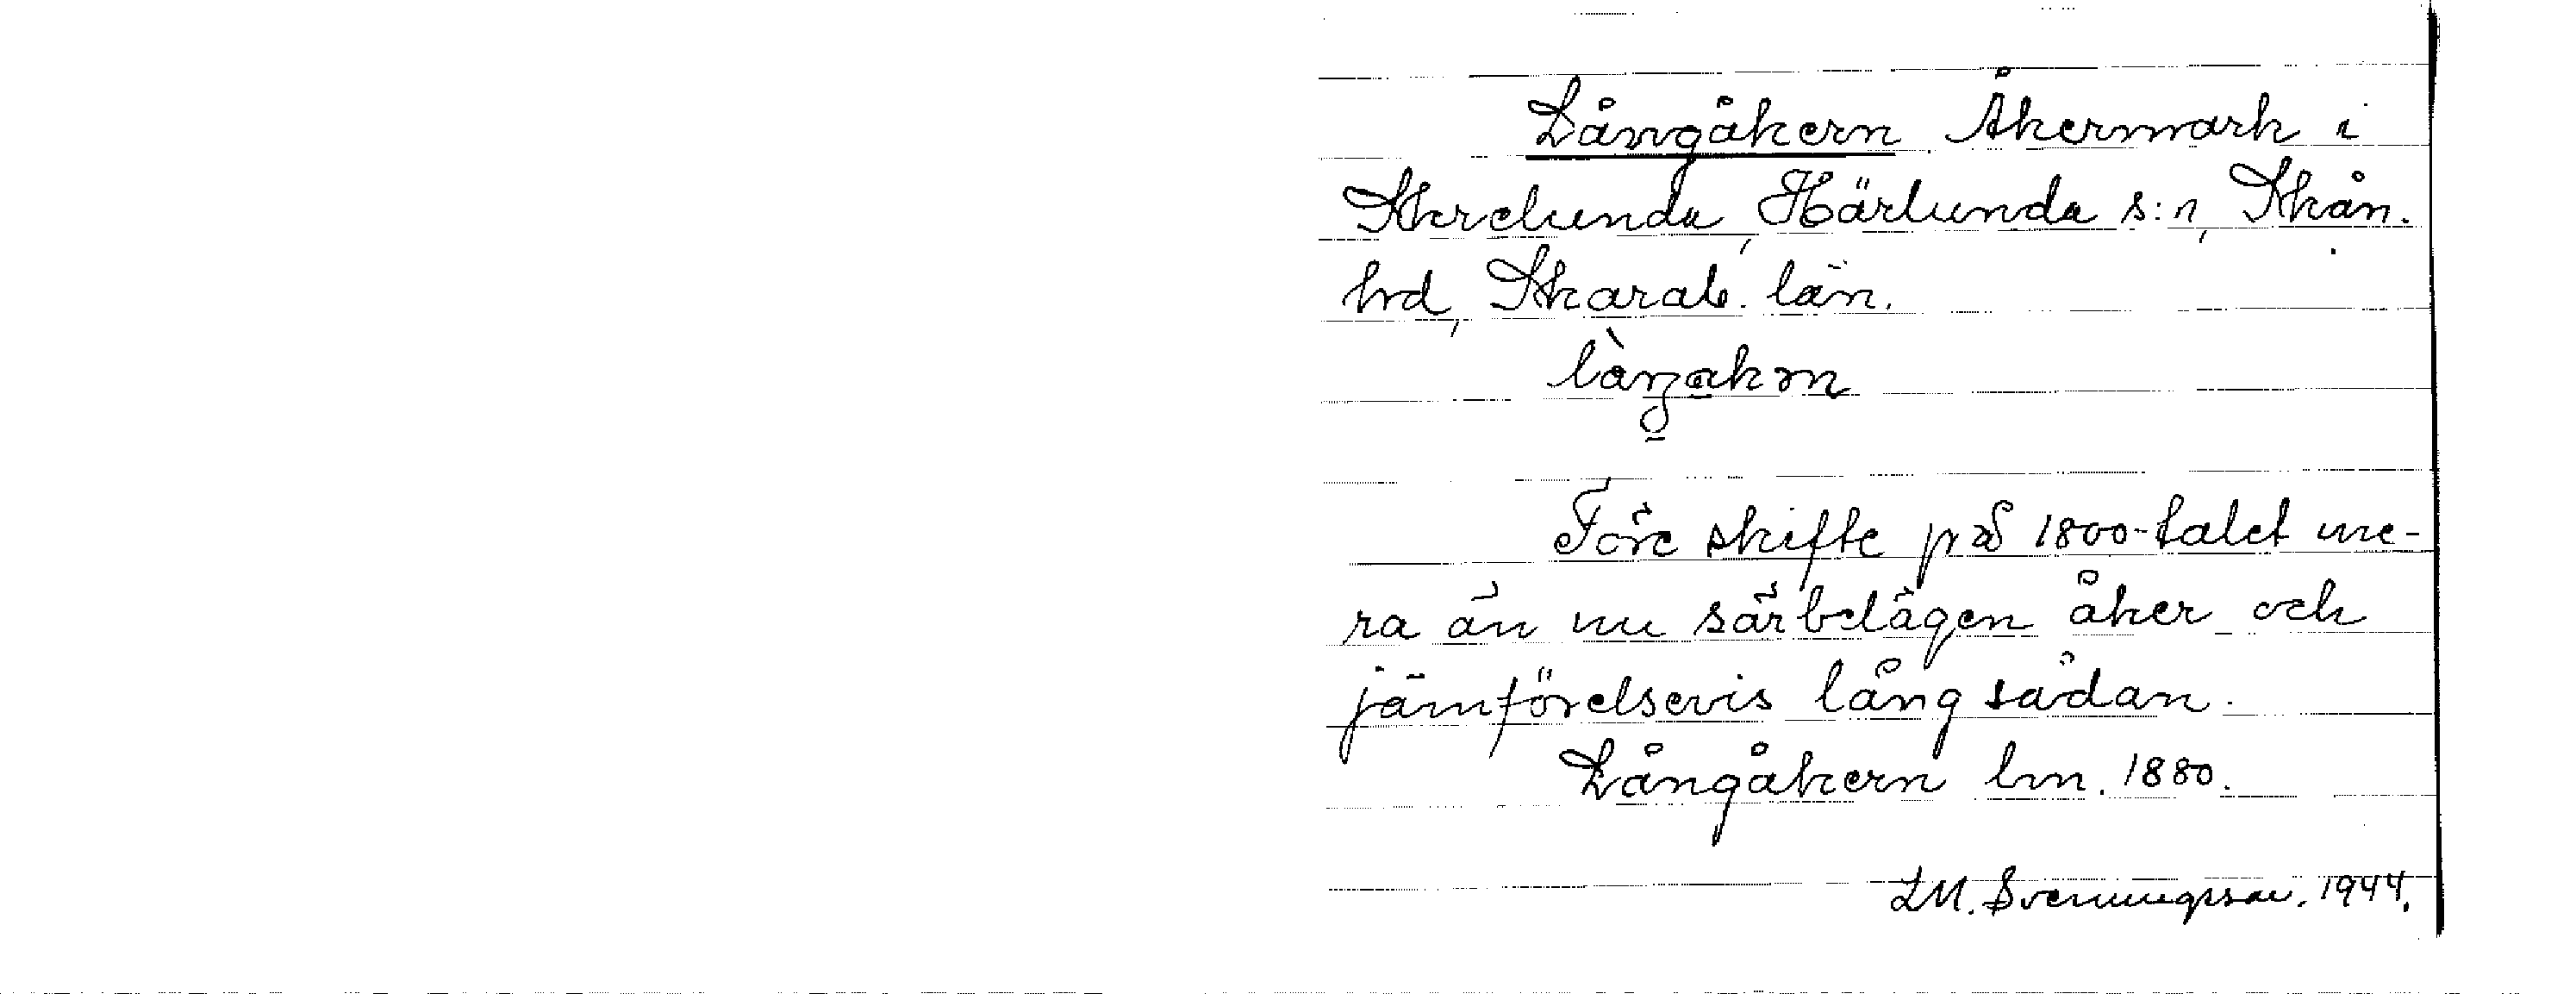 Långåkern Åkermark i
Skrelunda, Härlunda s:n, Skån.
hrd, Skarab. län.
Före skifte på 1800-talet me-
ra än nu särbelägen åker och
jämförelsevis lång sådan.
Långåkern lm. 1880.
LM. Svenungsson. 1944.